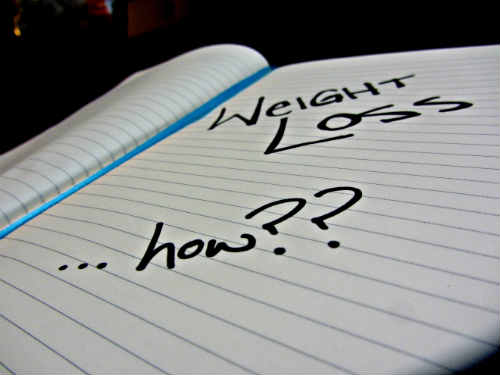 WEIGHT
LOSS
... how??